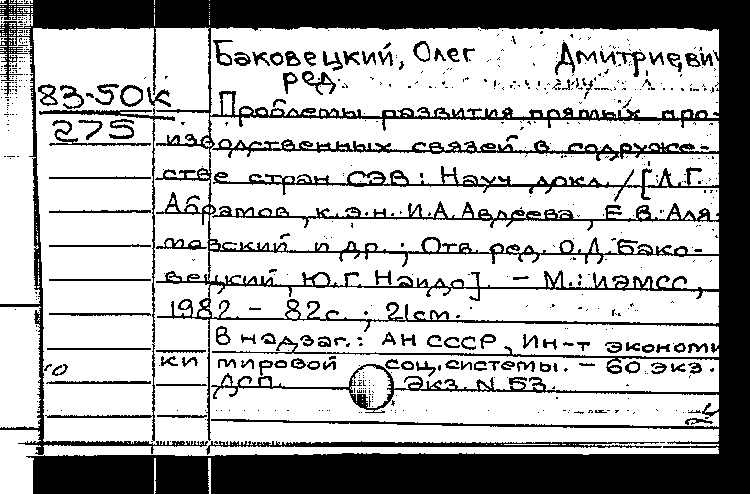 Баковецкий, Олег Дмитриевич
ред.
83-50К
275
Проблемы развития прямых про-
изводственных связей в содруже-
стве стран СЭВ: Науч. докл. / [Л.Г.
Абрамов, к.э.н. И.А. Авдеева, Е.В. Аля-
повский и др.; Отв. ред. О.Д. Бако-
вецкий, Ю.Г. Наидо]. - М.: ИЭМСС,
1982. - 82с.; 21см.
В надзаг.: АН СССР, Ин-т экономи
ки мировой соц. системы. - 60 экз.
ДСП. Экз. N 53.
10